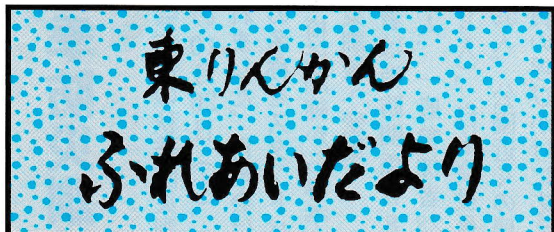 東りんかん
ふれあいだより